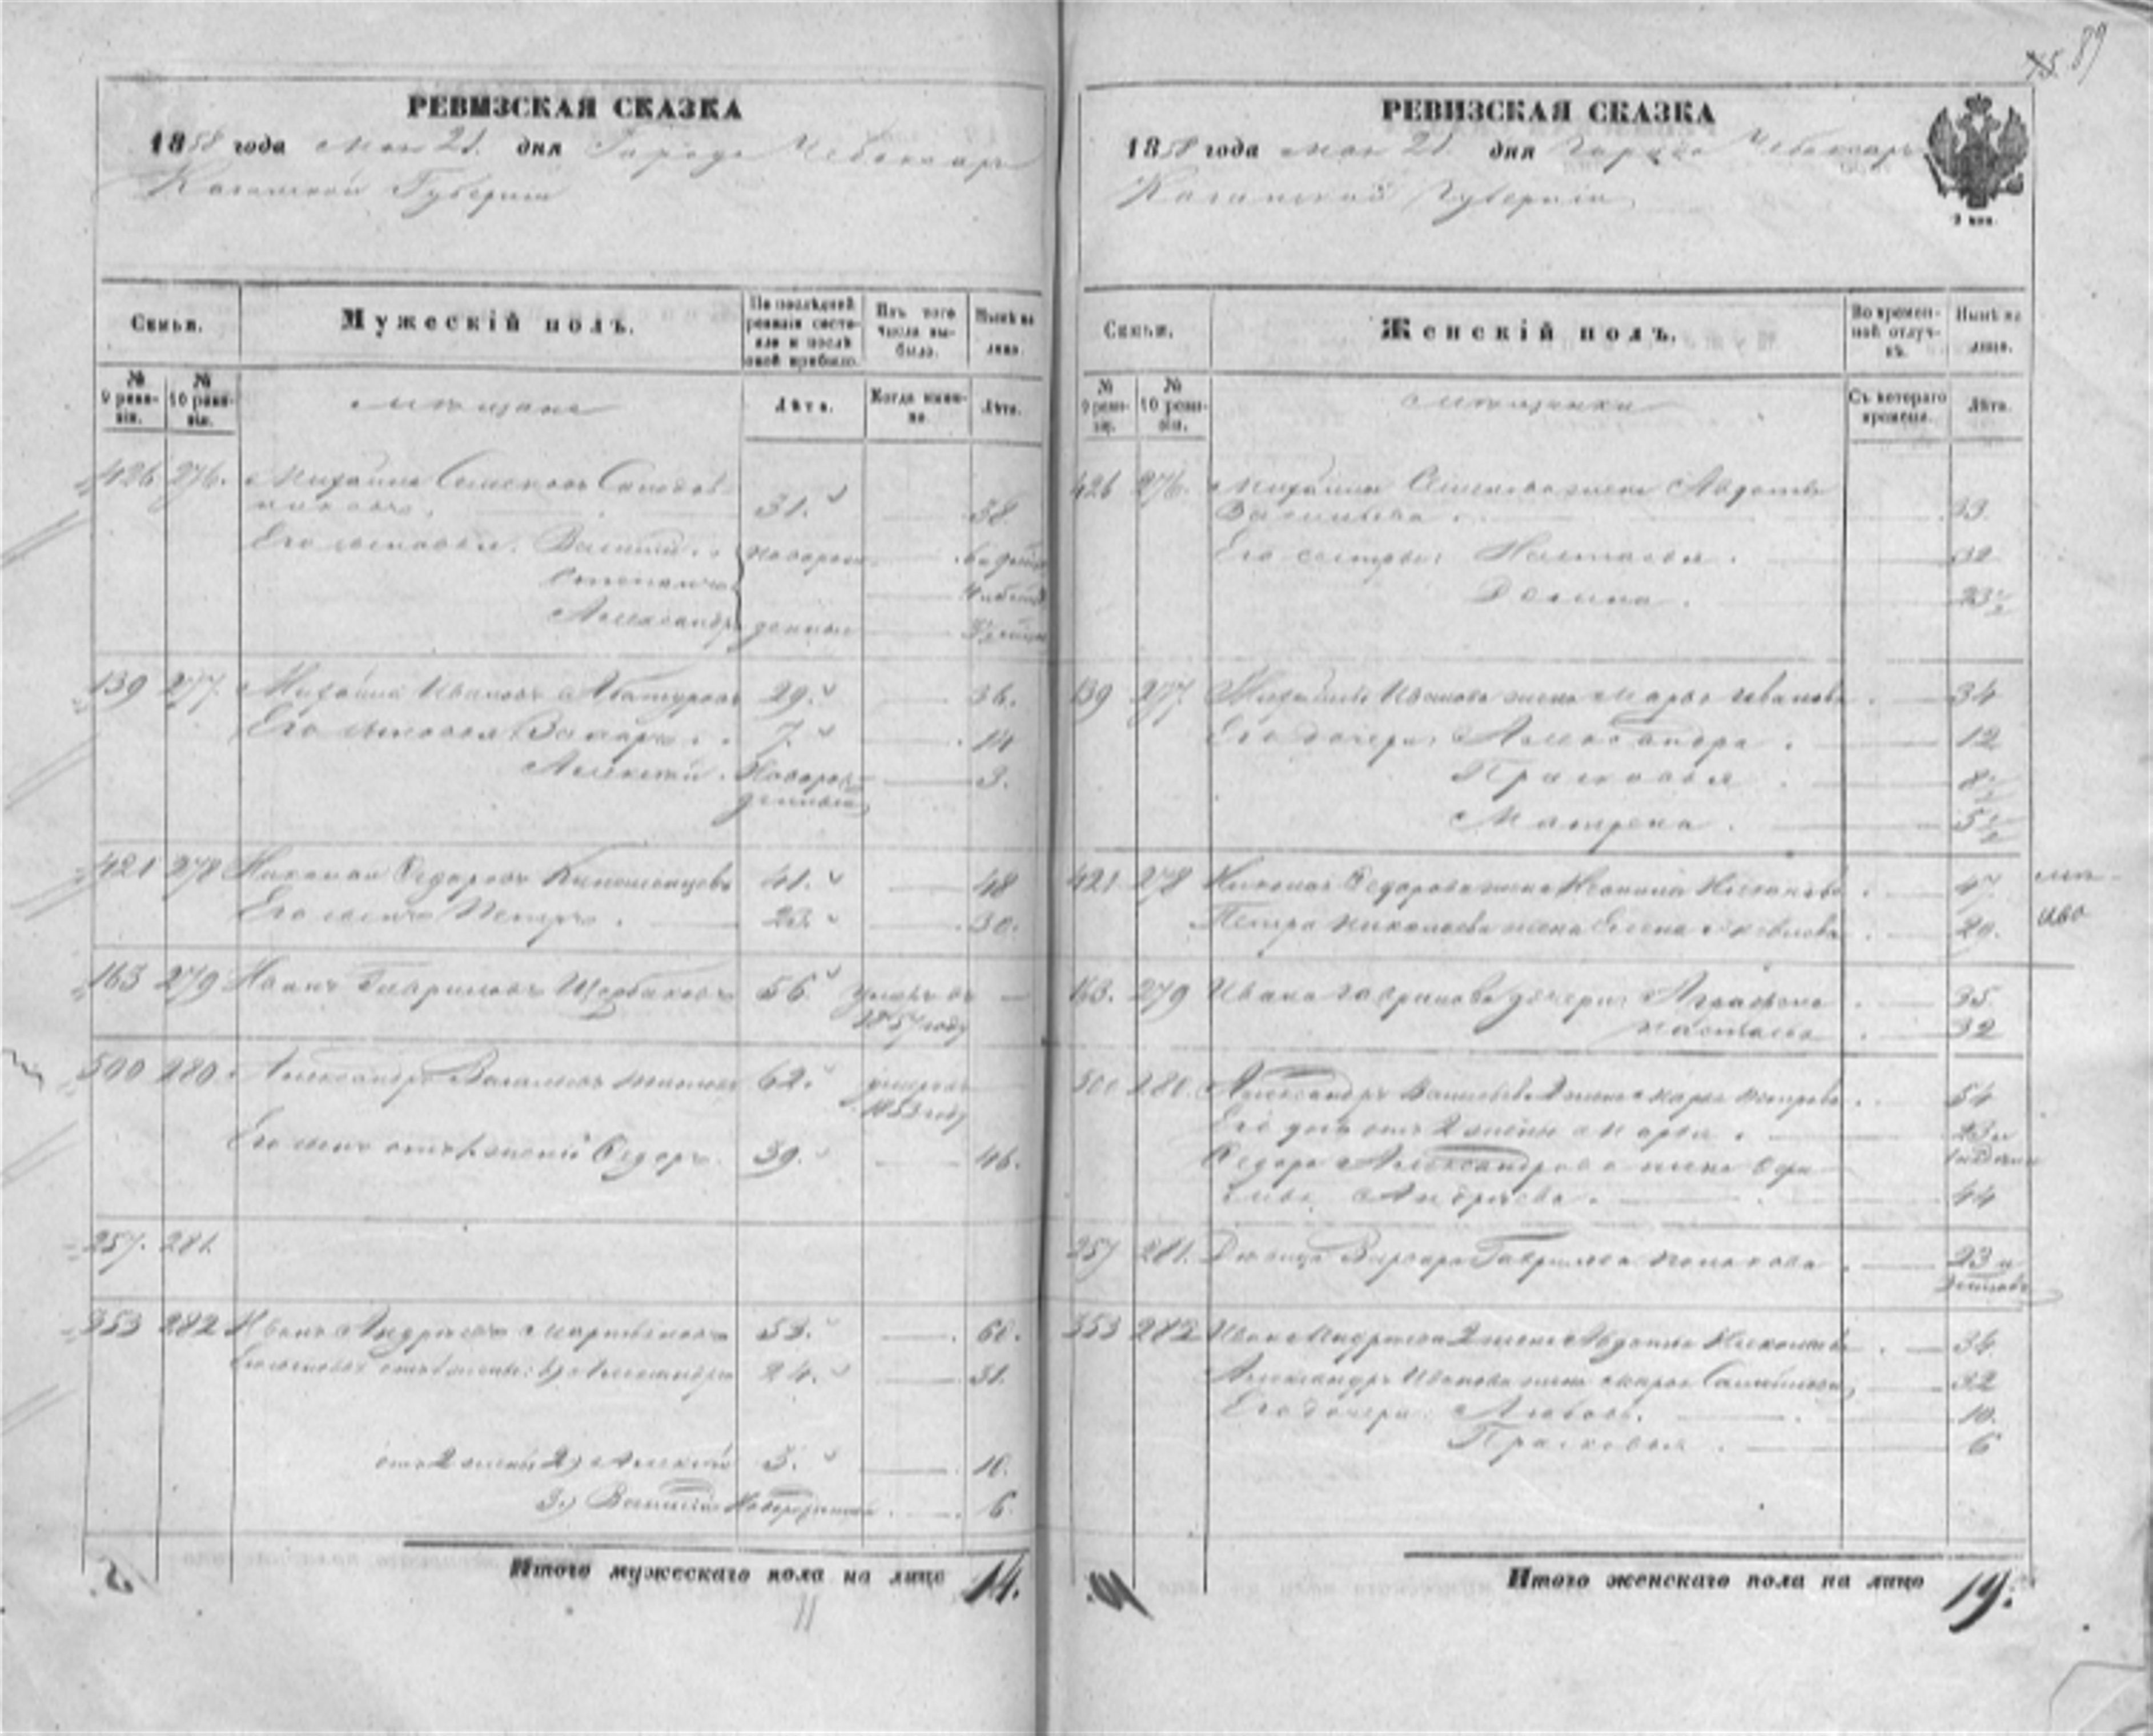 89
РЕВИЗСКАЯ СКАЗКА
1858 года мая 21. дня Города Чебоксаръ
Казанской Губернии
Семьи.
Мужескій полъ.
По послѣдней ревизіи состояло и послѣ оной прибыло.
Изъ того числа выбыло.
Нынѣ на лицо.
№ 9 ревизіи.
№ 10 ревизіи.
мѣщане
Лѣта.
Когда именно.
Лѣта.
426 276. Михайла Семеновъ
31. 38
Его сыновья: Василий новорож
Степанъ
Александръ денные
139 277. Михайла Ивановъ Абатуровъ 29. 36.
Его сыновья Захаръ 7. 14
Алексѣй Новорож 3.
денный
421 278 Николай Федоровъ 41. 48
Его сынъ Петръ 23. 30.
163 279 Иванъ Гавриловъ Щербаковъ 56. умеръ въ
1857 году
500 280. Александръ Васильевъ 62. умеръ въ
1853 году
Его сынъ отъ 1. жены Федоръ 39. 46.
257. 281.
353 282 Иванъ Андреевъ 53. 60.
Его сыновья отъ 1 жены: 1) Александръ 24. 31.
отъ 2 жены 2) Алексѣй 3. 10.
3.) Василий Новорожденный 6.
Итого мужескаго пола на лицо 14.
РЕВИЗСКАЯ СКАЗКА
1858 года мая 21. дня Города Чебоксаръ
Казанской Губерніи
Семьи.
Женскій полъ.
Во временной отлучкѣ.
Нынѣ на лицо.
№ 9 ревизіи.
№ 10 ревизіи.
мѣщанки
Съ котораго времени.
Лѣта.
426 276. Михайлы Семенова жена Авдотья
Васильева 33.
Его сестры: Настасья
139 277. Михайлы Иванова жена Марья Иванова 34
Его дочери: Александра 12
Прасковья 8½
Матрена 5½
421 278 Николая Федорова жена 47
Петра Николаева жена Елена Яковлева 29.
163. 279 Ивана Гаврилова дочери: Аграфена 35.
Настасья 32
500 280. Александра Васильева 2 жена Марья Петрова 54
Его дочь отъ 2 жены Марья
Федора Александрова жена
Андреева 44
257 281. Девица Варвара Гаврилова
353 282 Ивана Андреева 2 жена Авдотья 34.
Александра Иванова жена Марья 32
Его дочери: Любовь 10.
Прасковья 6
Итого женскаго пола на лицо 19.